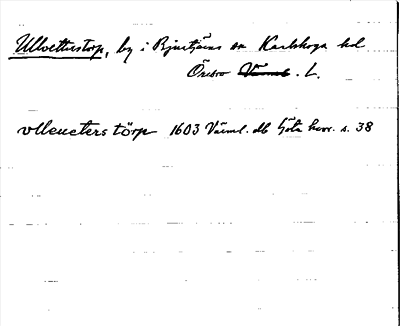 Ullvettertorp, by i Bjurtjärns sn Karlskoga hd
Örebro Värml. L.
vlleueters törp 1603 Värml. db Göta hovr. s. 38